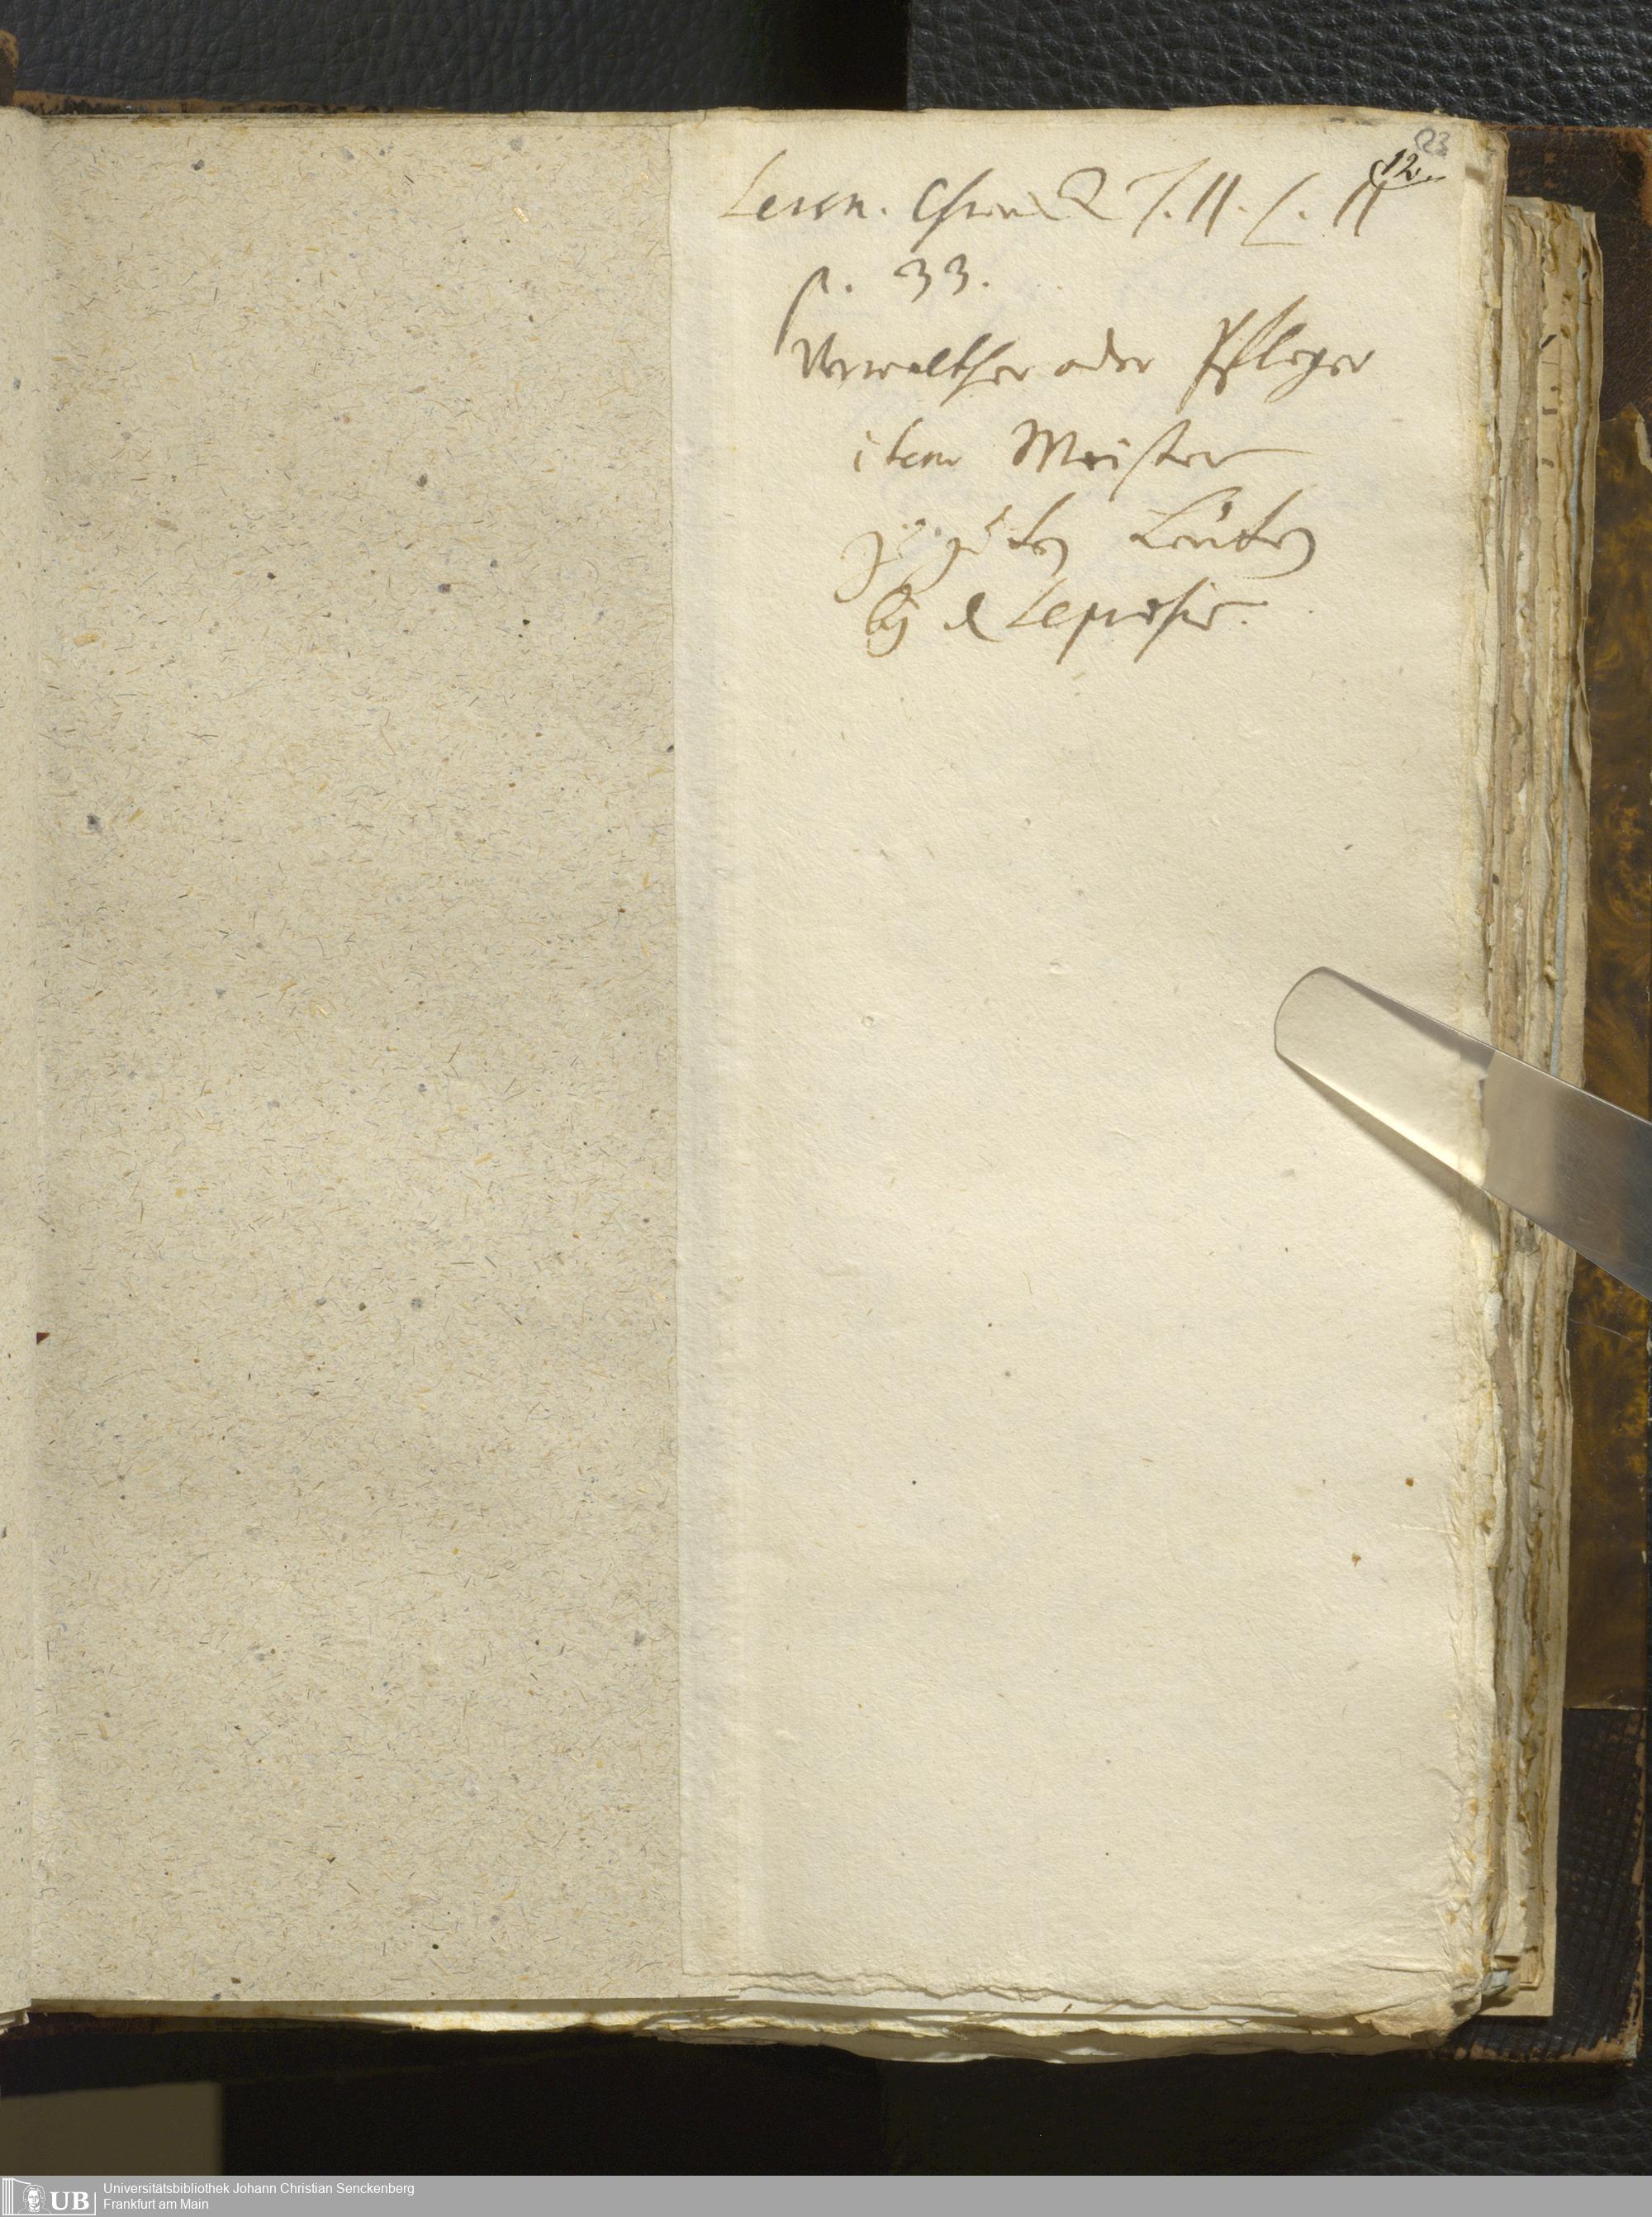 23
12.
Lersn. Chron T. II. L. II
p. 33.
Verwalther oder Pfleger
item Meister
zu guten Leuten
bey d Leprosis.
UB Universitätsbibliothek Johann Christian Senckenberg
Frankfurt am Main